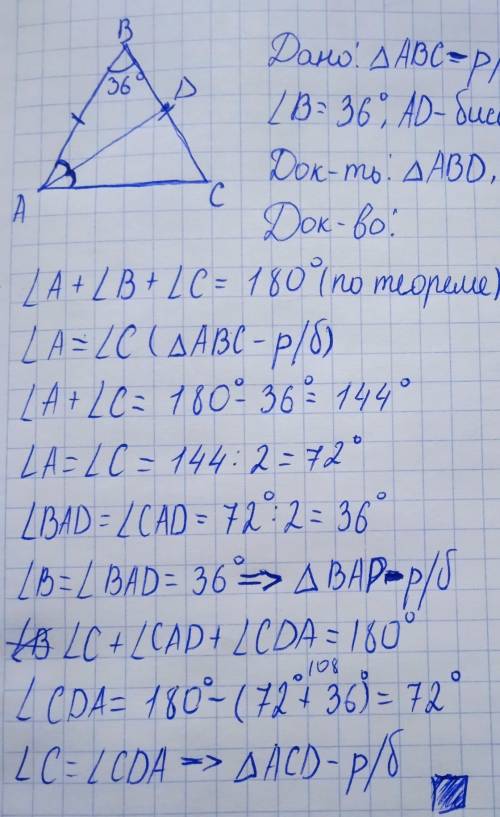 B
36°
D
A
C
Дано: △ABC – р/
∠B = 36°, AD – бисс
Док-ть: △ABD,
Док-во:
∠A + ∠B + ∠C = 180° (по теореме)
∠A = ∠C (△ABC – р/б)
∠A + ∠C = 180° – 36° = 144°
∠A = ∠C = 144 : 2 = 72°
∠BAD = ∠CAD = 72° : 2 = 36°
∠B = ∠BAD = 36° => △BAD – р/б
∠C + ∠CAD + ∠CDA = 180°
108
∠CDA = 180° – (72° + 36°) = 72°
∠C = ∠CDA => △ACD – р/б